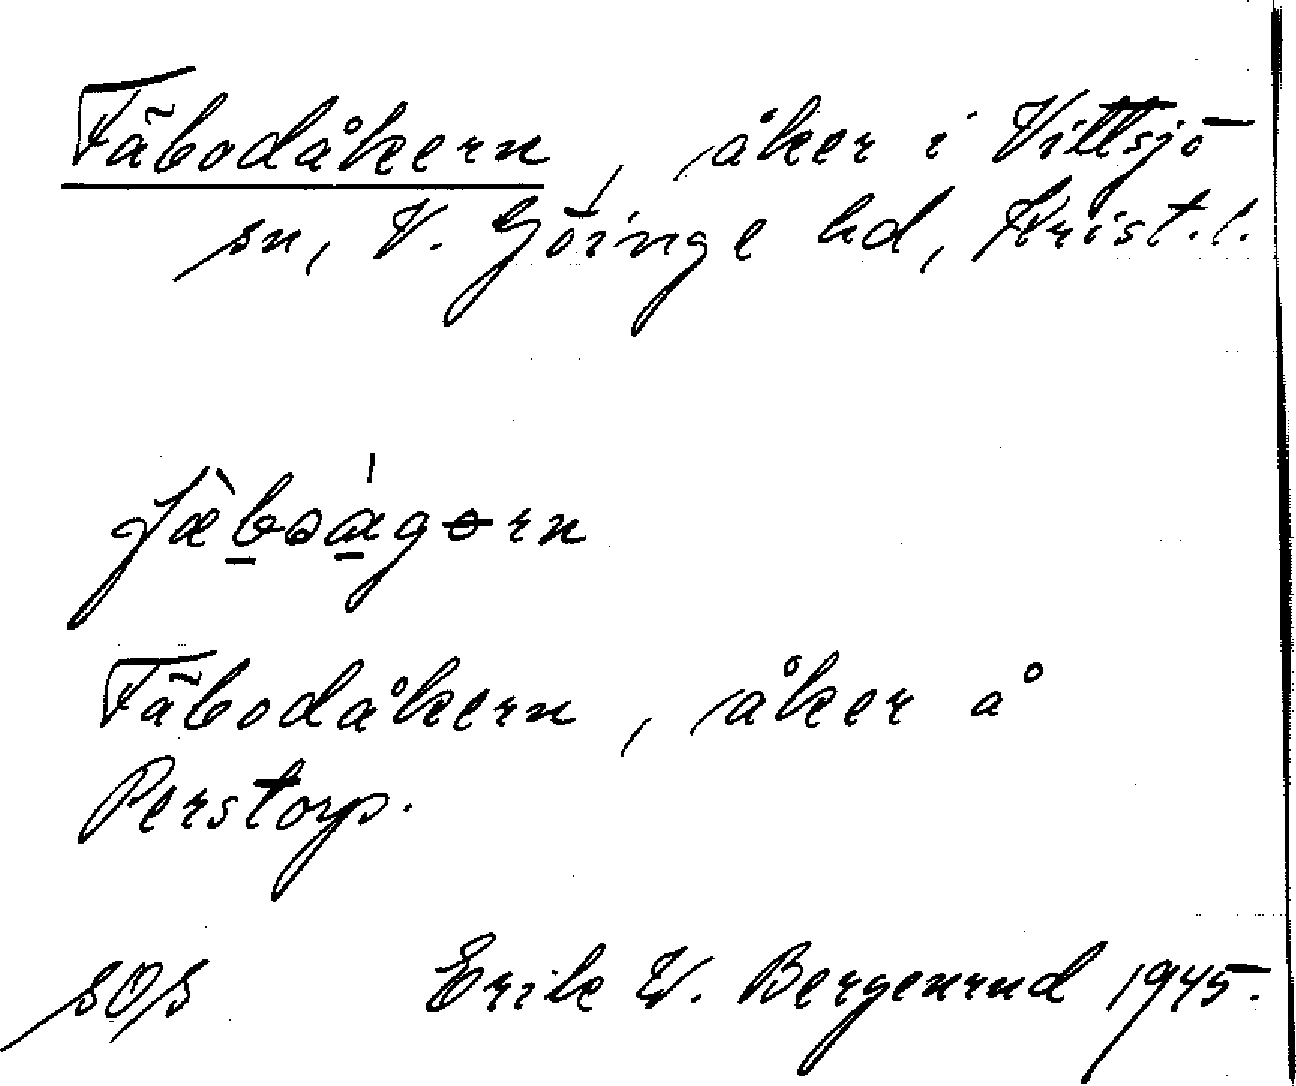 Fäbodåkern, åker i Vittsjö
sn, V. Göinge hd, Krist. l.
Fäbodåkern, åker å
Perstorp.
Erik W. Bergenrud 1945.